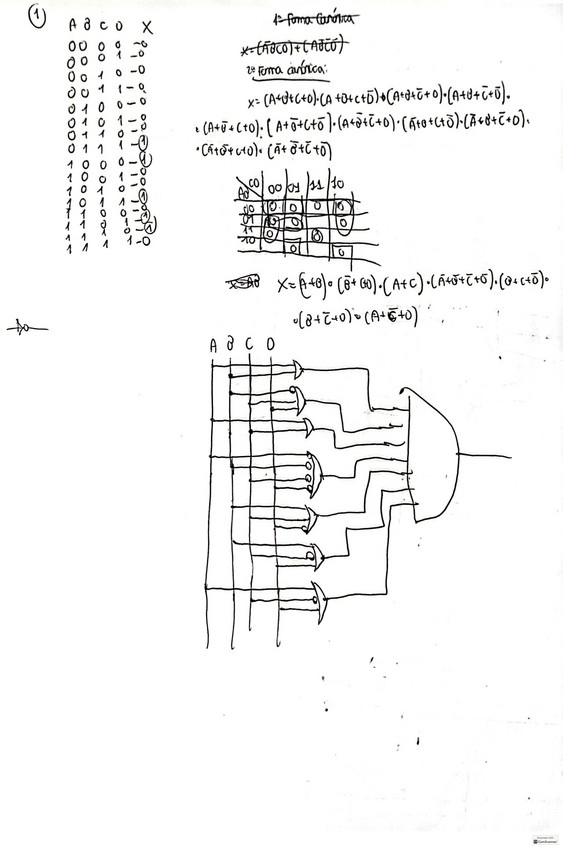 1
A B C D X
0 0 0 0 - 0
0 0 0 1 - 0
0 0 1 0 - 0
0 0 1 1 - 0
0 1 0 0 - 0
0 1 0 1 - 0
0 1 1 0 - 0
0 1 1 1 - 1
1 0 0 0 - 1
1 0 0 1 - 0
1 0 1 0 - 0
1 0 1 1 - 1
1 1 0 0
1 1 0 1
1 1 1 0 - 1
1 1 1 1 - 0
1ª Forma Canónica
2ª Forma canónica:
X = (A+B+C+D)·(A+B+C+D̅)·(A+B+C̅+D)·(A+B+C̅+D̅)·
·(A+B̅+C+D)·(A+B̅+C+D̅)·(A+B̅+C̅+D)·(A̅+B+C+D̅)·(A̅+B+C̅+D)·
·(A̅+B̅+C+D)·(A̅+B̅+C̅+D̅)
CD
AB
00 01 11 10
00 0 0 0 0
01 0 0 0
11 0 0
10 0 0
X = (A+B)·(B̅+C+D)·(A+C)·(A̅+B̅+C̅+D̅)·(B+C+D̅)·
·(B+C̅+D)·(A+C̅+D)
A B C D
CamScanner